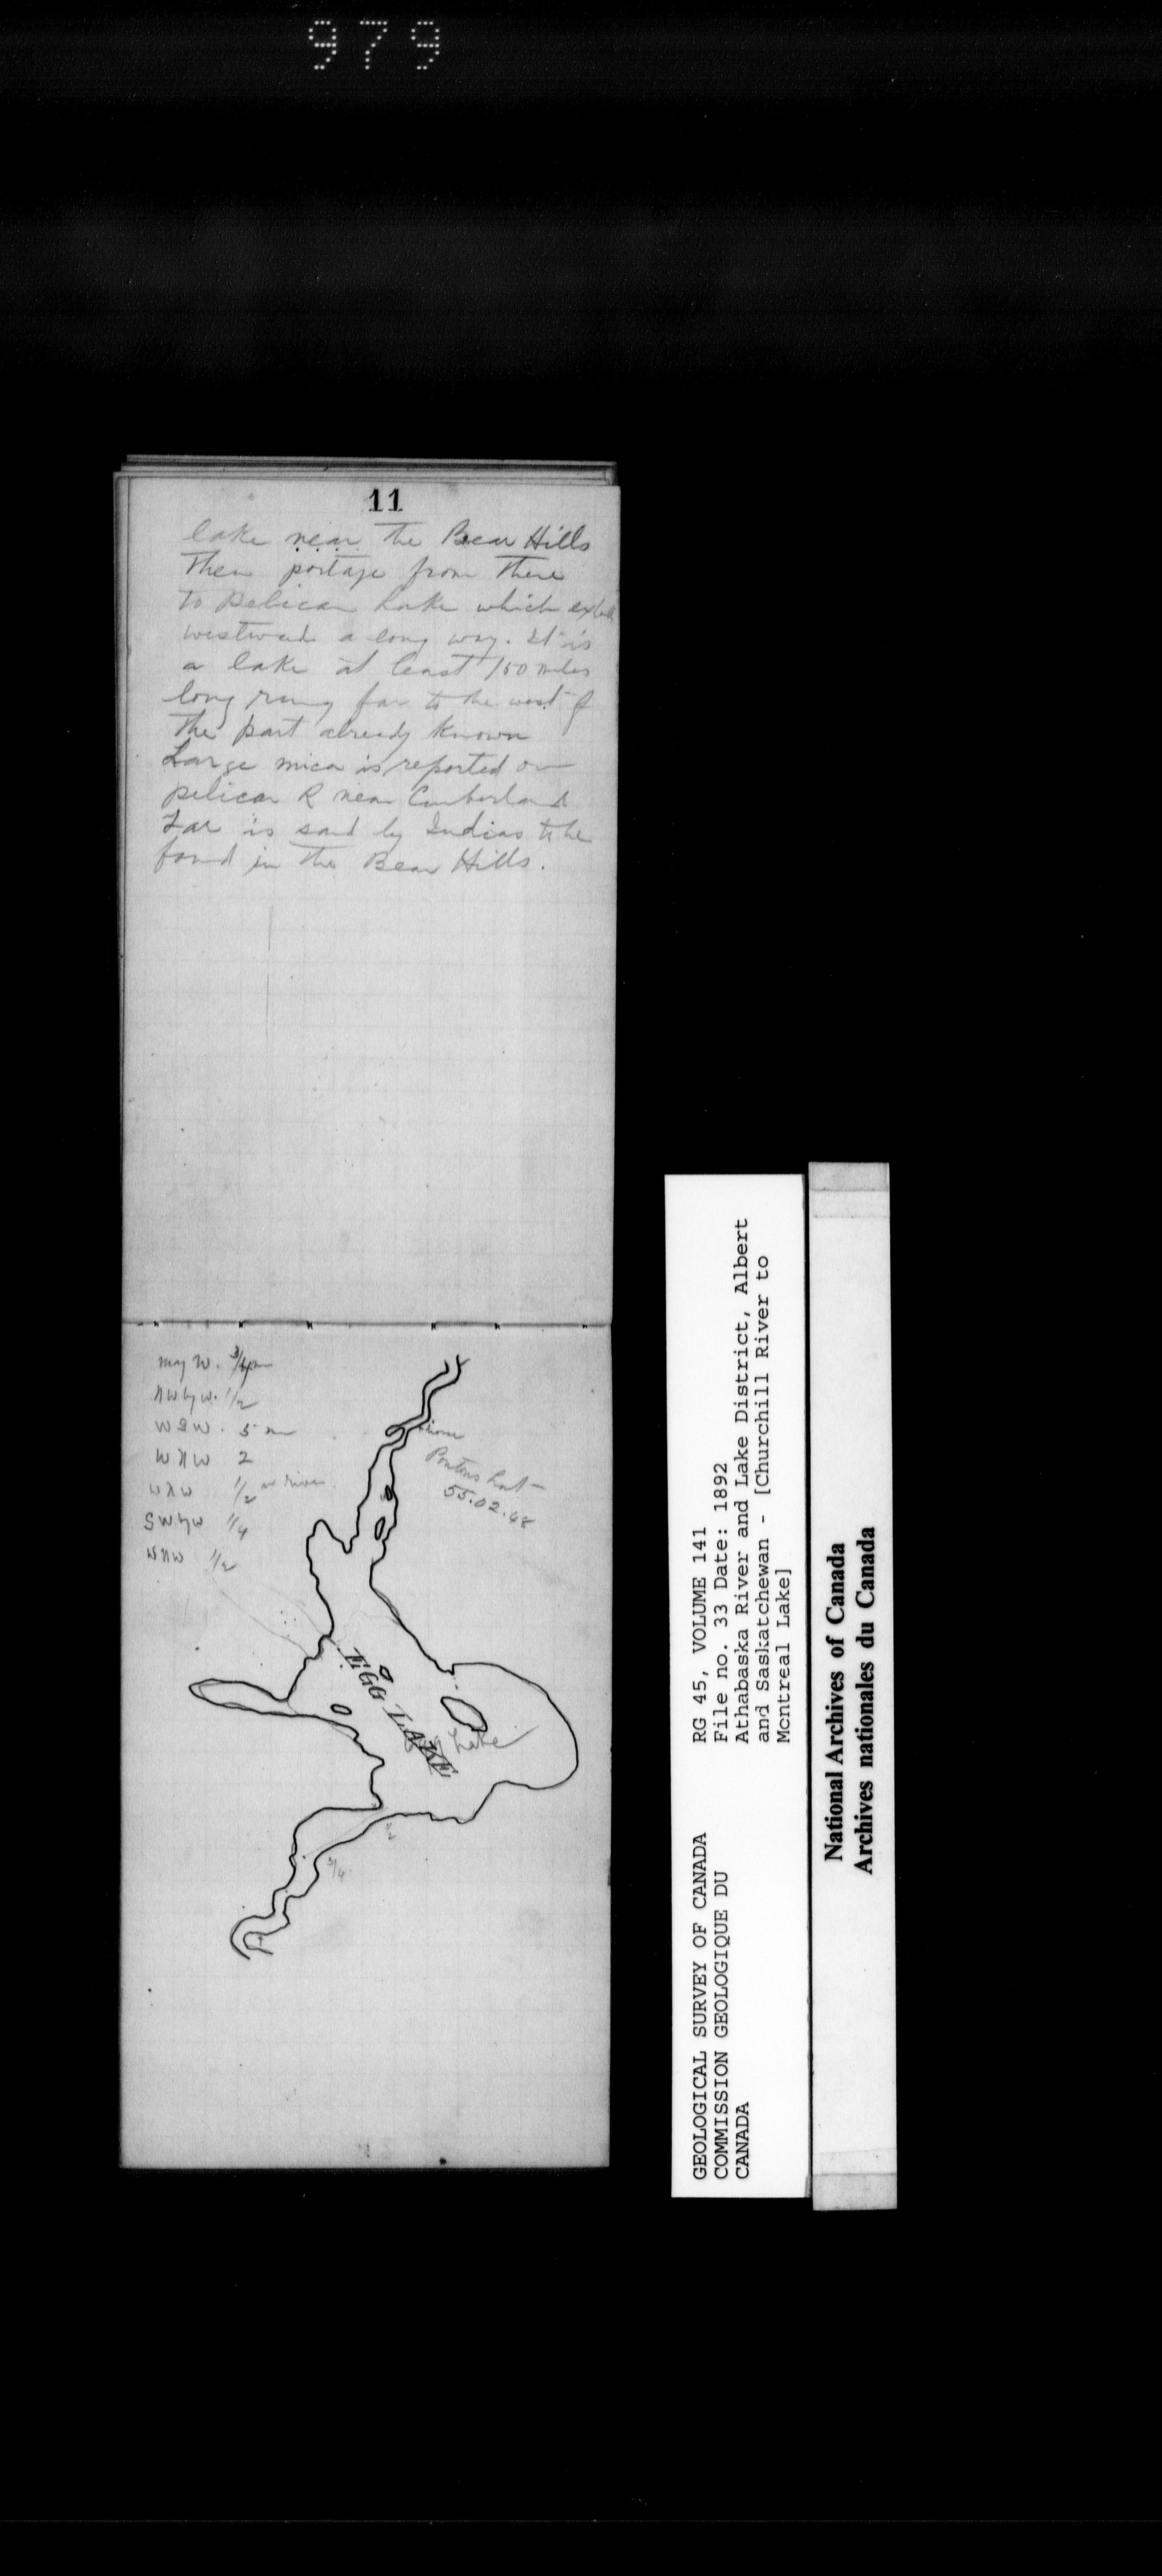 979
11
lake near the Bear Hills
Then portage from there
to Pelican Lake which
westward a long way. It is
a lake at least 150 miles
long runng far to the west of
the part already known
Large mica is reported on
pelican R near Cumberland
Tar is said by Indias to be
found in the Bear Hills.
mag W. 3/4 m
NW by W. 1/2
WSW. 5 m
WNW 2
WNW 1/2 river
SW by W 1/4
WNW 1/2
55.02.48
EGG LAKE
Lake
1/2
3/4
GEOLOGICAL SURVEY OF CANADA
COMMISSION GEOLOGIQUE DU
CANADA
RG 45, VOLUME 141
File no. 33 Date: 1892
Athabaska River and Lake District, Albert
and Saskatchewan - [Churchill River to
Montreal Lake]
National Archives of Canada
Archives nationales du Canada